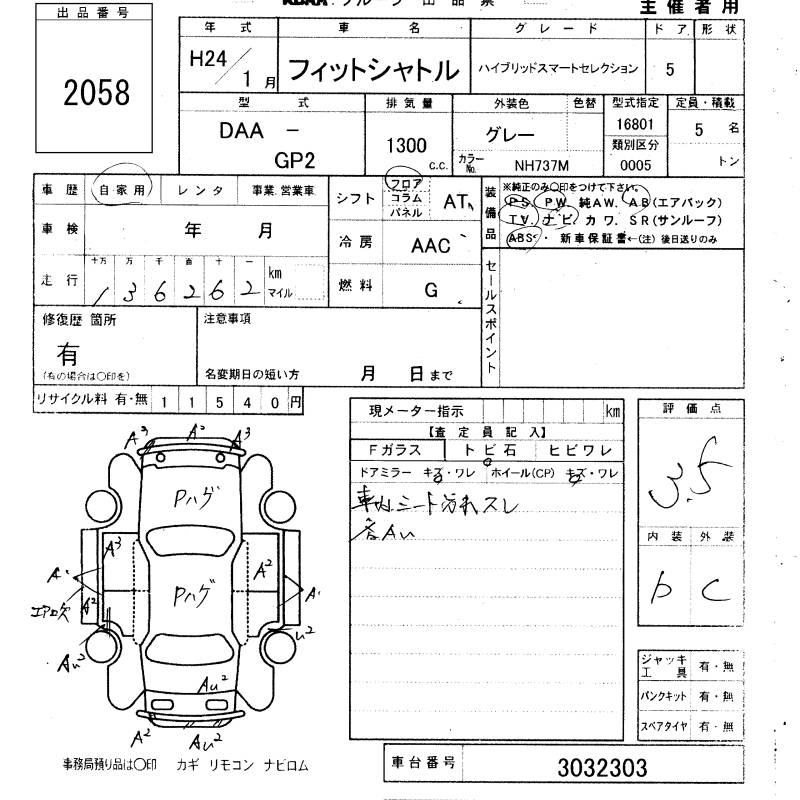 出品番号
2058
主催者用
年式 車名 グレード ドア 形状
H24/1月 フィットシャトル ハイブリッドスマートセレクション 5
型式 排気量 外装色 色替 型式指定 定員・積載
DAA - GP2 1300 c.c. グレー 16801 5 名
類別区分
カラーNo. NH737M 0005 トン
車歴 自家用 レンタ 事業.営業車 シフト フロア コラム パネル AT 装備品 ※純正のみ〇印をつけて下さい。
PS. PW. 純AW. AB(エアバック)
TV. ナビ. カワ. SR(サンルーフ)
ABS・ 新車保証書←(注) 後日送りのみ
車検 年 月 冷房 AAC
走行 十万 万 千 百 十 一 km マイル 燃料 G
136262
セールスポイント
修復歴 箇所 注意事項
有
(有の場合は〇印を) 名変期日の短い方 月 日まで
リサイクル料 有・無 11540円
現メーター指示 km 評価点
【査定員記入】
Fガラス トビ石 ヒビワレ
ドアミラー キズ・ワレ ホイール(CP) キズ・ワレ
車内シート汚れスレ
各AU
3.5
内装 外装
b C
A3 A2 A3
Pハゲ
A3 A2
A1 A1
Pハゲ
エアロ欠 A2
U2
AU2
AU2
A2 AU2
ジャッキ工具 有・無
パンクキット 有・無
スペアタイヤ 有・無
事務局預り品は〇印 カギ リモコン ナビロム
車台番号 3032303